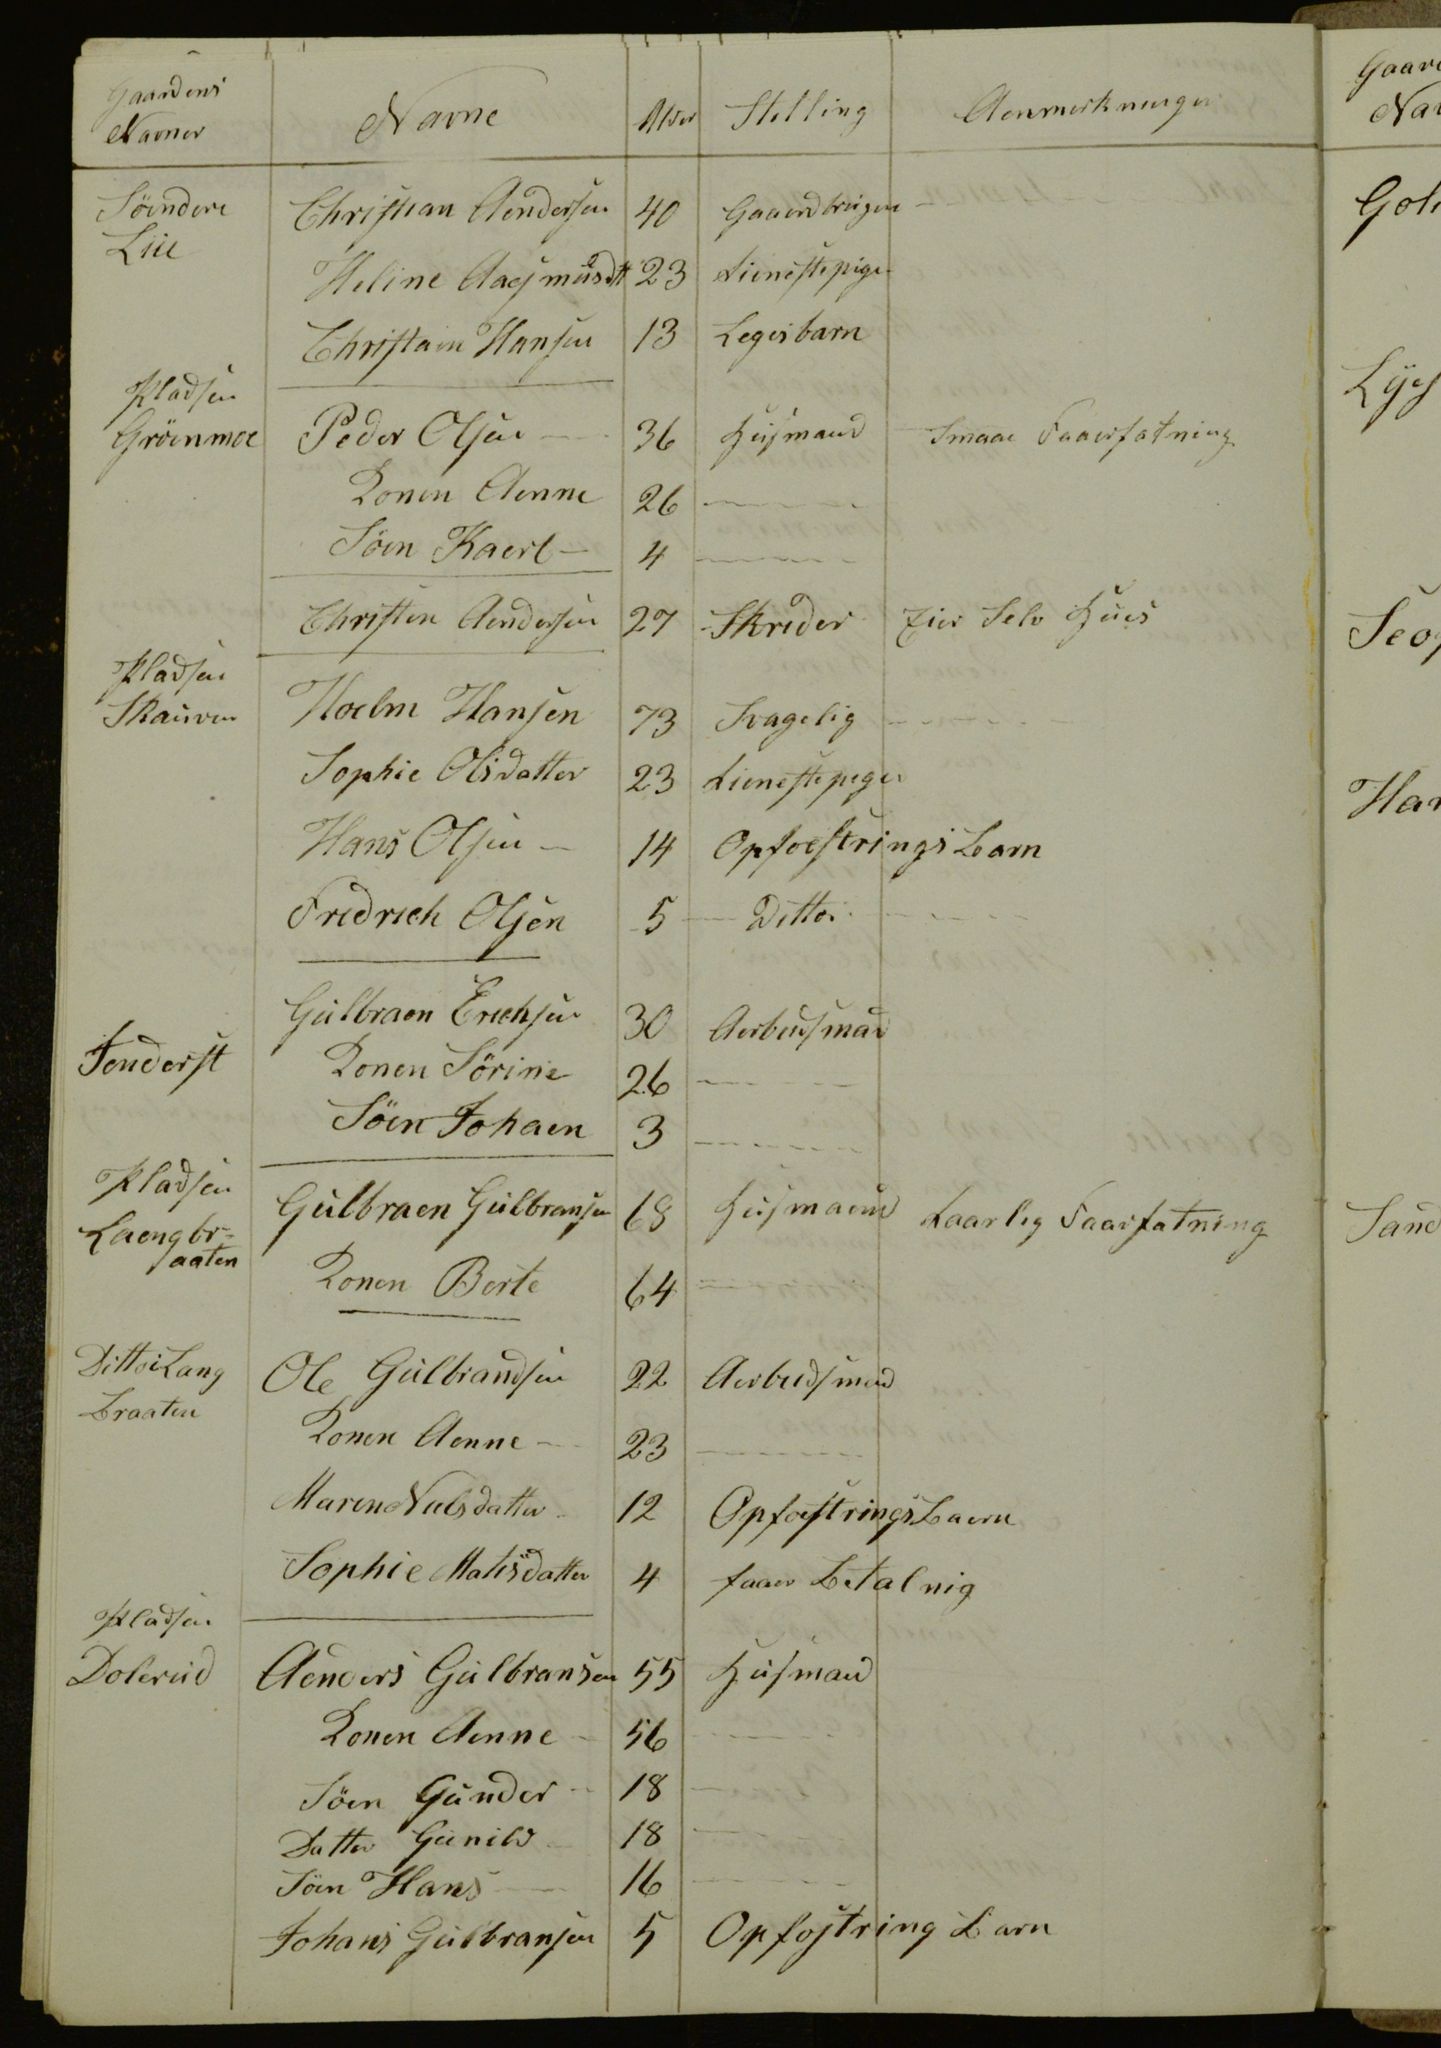 Gaardens Navner | Navne | Alder | Stelling | Aenmerkninger
Söendere Christian Aendersen 40 Gaaerdbrüger
Liie
Heline Aasmüsdtt 23 Tieneste pige
Christaen Hansen 13 Legesbarn
Pladsen
Gröenmoe Peder Olsen 36 Hüsmand Smaae Faaerfatning
Konen Aenne 26
Söen Kaerl 4
Christen Aendersen 27 Skreder Eier Selv Hües
Pladsen
Skaüven Hoelm Hansen 73 Svagelig
Sophie Olsdatter 23 Tieneste pige
Hans Olsen 14 Opfoestrings Barn
Fredrich Olsen 5 Ditto
Gülbraen Erichsen 30 Aerbeidsmand
Inderst Konen Sörine 26
Söen Johaen 3
Pladsen
Laengbr= Gülbraen Gülbransen 68 Hüsmaend Daarlig Faaerfatning
aaten
Konen Berte 64
Ditto Lang Ole Gülbrandsen 22 Aerbeidsmand
Braaten
Konen Aenne 23
Maren Nielsdatter 12 Opfoestrings Baern
Sophie Matisdatter 4 faaer Betalnig
Pladsen
Dolerüd Aenders Gülbransen 55 Hüsmand
Konen Aenne 56
Söen Günder 18
Datter Günild 18
Söen Hans 16
Johans Gülbransen 5 Opfostring Barn
Gaard
Nav
Gol
Har
Sand